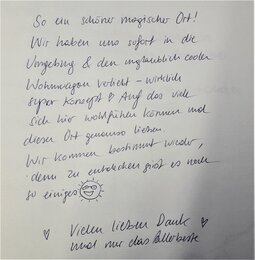 So ein schöner magischer Ort!
Wir haben uns sofort in die
Umgebung & den unglaublich coolen
Wohnwagon verliebt - wirklich
super Konzept! Auf das viele
sich hier wohlfühlen können und
diesen Ort genauso lieben.
Wir kommen bestimmt wieder,
denn zu entdecken gibt es noch
so einiges
Vielen lieben Dank
und nur das Allerbeste